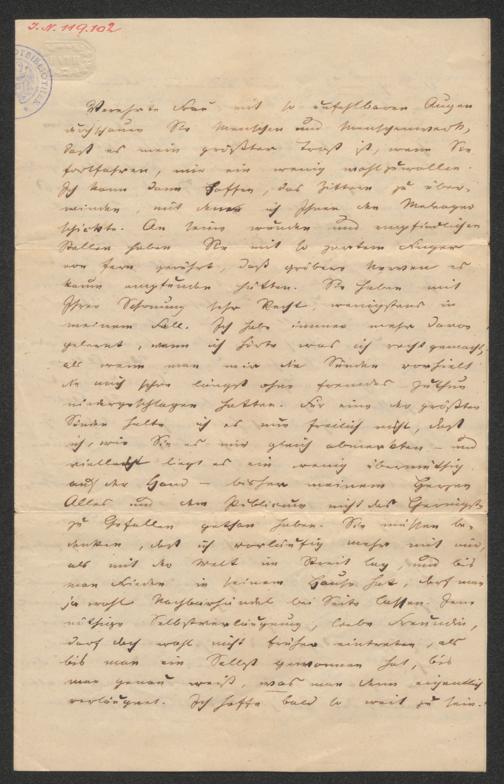 I.N. 119.102
Verehrte Frau mit so unfehlbaren Augen
durchschauen Sie Menschen und Menschenwerk,
daß es mein größter Trost ist, wenn Sie
fortfahren, mir ein wenig wohlzuwollen.
Ich kann dann hoffen, das Zittern zu über-
winden, mit dem ich Ihnen den Meleager
schickte. An seine wunden und empfindlichen
Stellen haben Sie mit so zartem Finger
von fern gerührt, daß gröbere Nerven es
kaum empfunden hätten. Sie haben mit
Ihrer Schonung sehr Recht, wenigstens in
meinem Fall. Ich habe immer mehr davon
gelernt, wenn ich hörte was ich recht gemacht,
als wenn man mir die Sünden vorhielt
die mich schon längst ohne fremdes Zuthun
niedergeschlagen hatten. Für eine der größten
Sünden halte ich es nun freilich nicht, daß
ich, wie Sie es mir gleich abmerkten – und
vielleicht liegt es ein wenig übermüthig
auf der Hand – bisher meinem Herzen
Alles und dem Publicum nicht das Geringste
zu Gefallen gethan habe. Sie müssen be-
denken, daß ich vorläufig mehr mit mir,
als mit der Welt im Streit lag, und bis
man Frieden in seinem Hause hat, darf man
ja wohl Nachbarhändel bei Seite lassen. Jene
nöthige Selbstverläugnung, liebe Freundin,
darf doch wohl nicht früher eintreten, als
bis man ein Selbst gewonnen hat, bis
man genau weiß, was man denn eigentlich
verläugnet. Ich hoffe bald so weit zu sein.